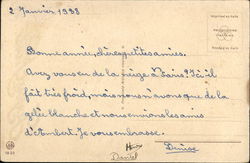 2 Janvier 1938
Bonne année, chères petites amies.
Avez vous eu de la neige à Paris? Ici il
fait très froid, mais nous n'avons que de la
gelée blanche et nous envions les amis
d'Embert. Je vous embrasse.
Denise
Daniel